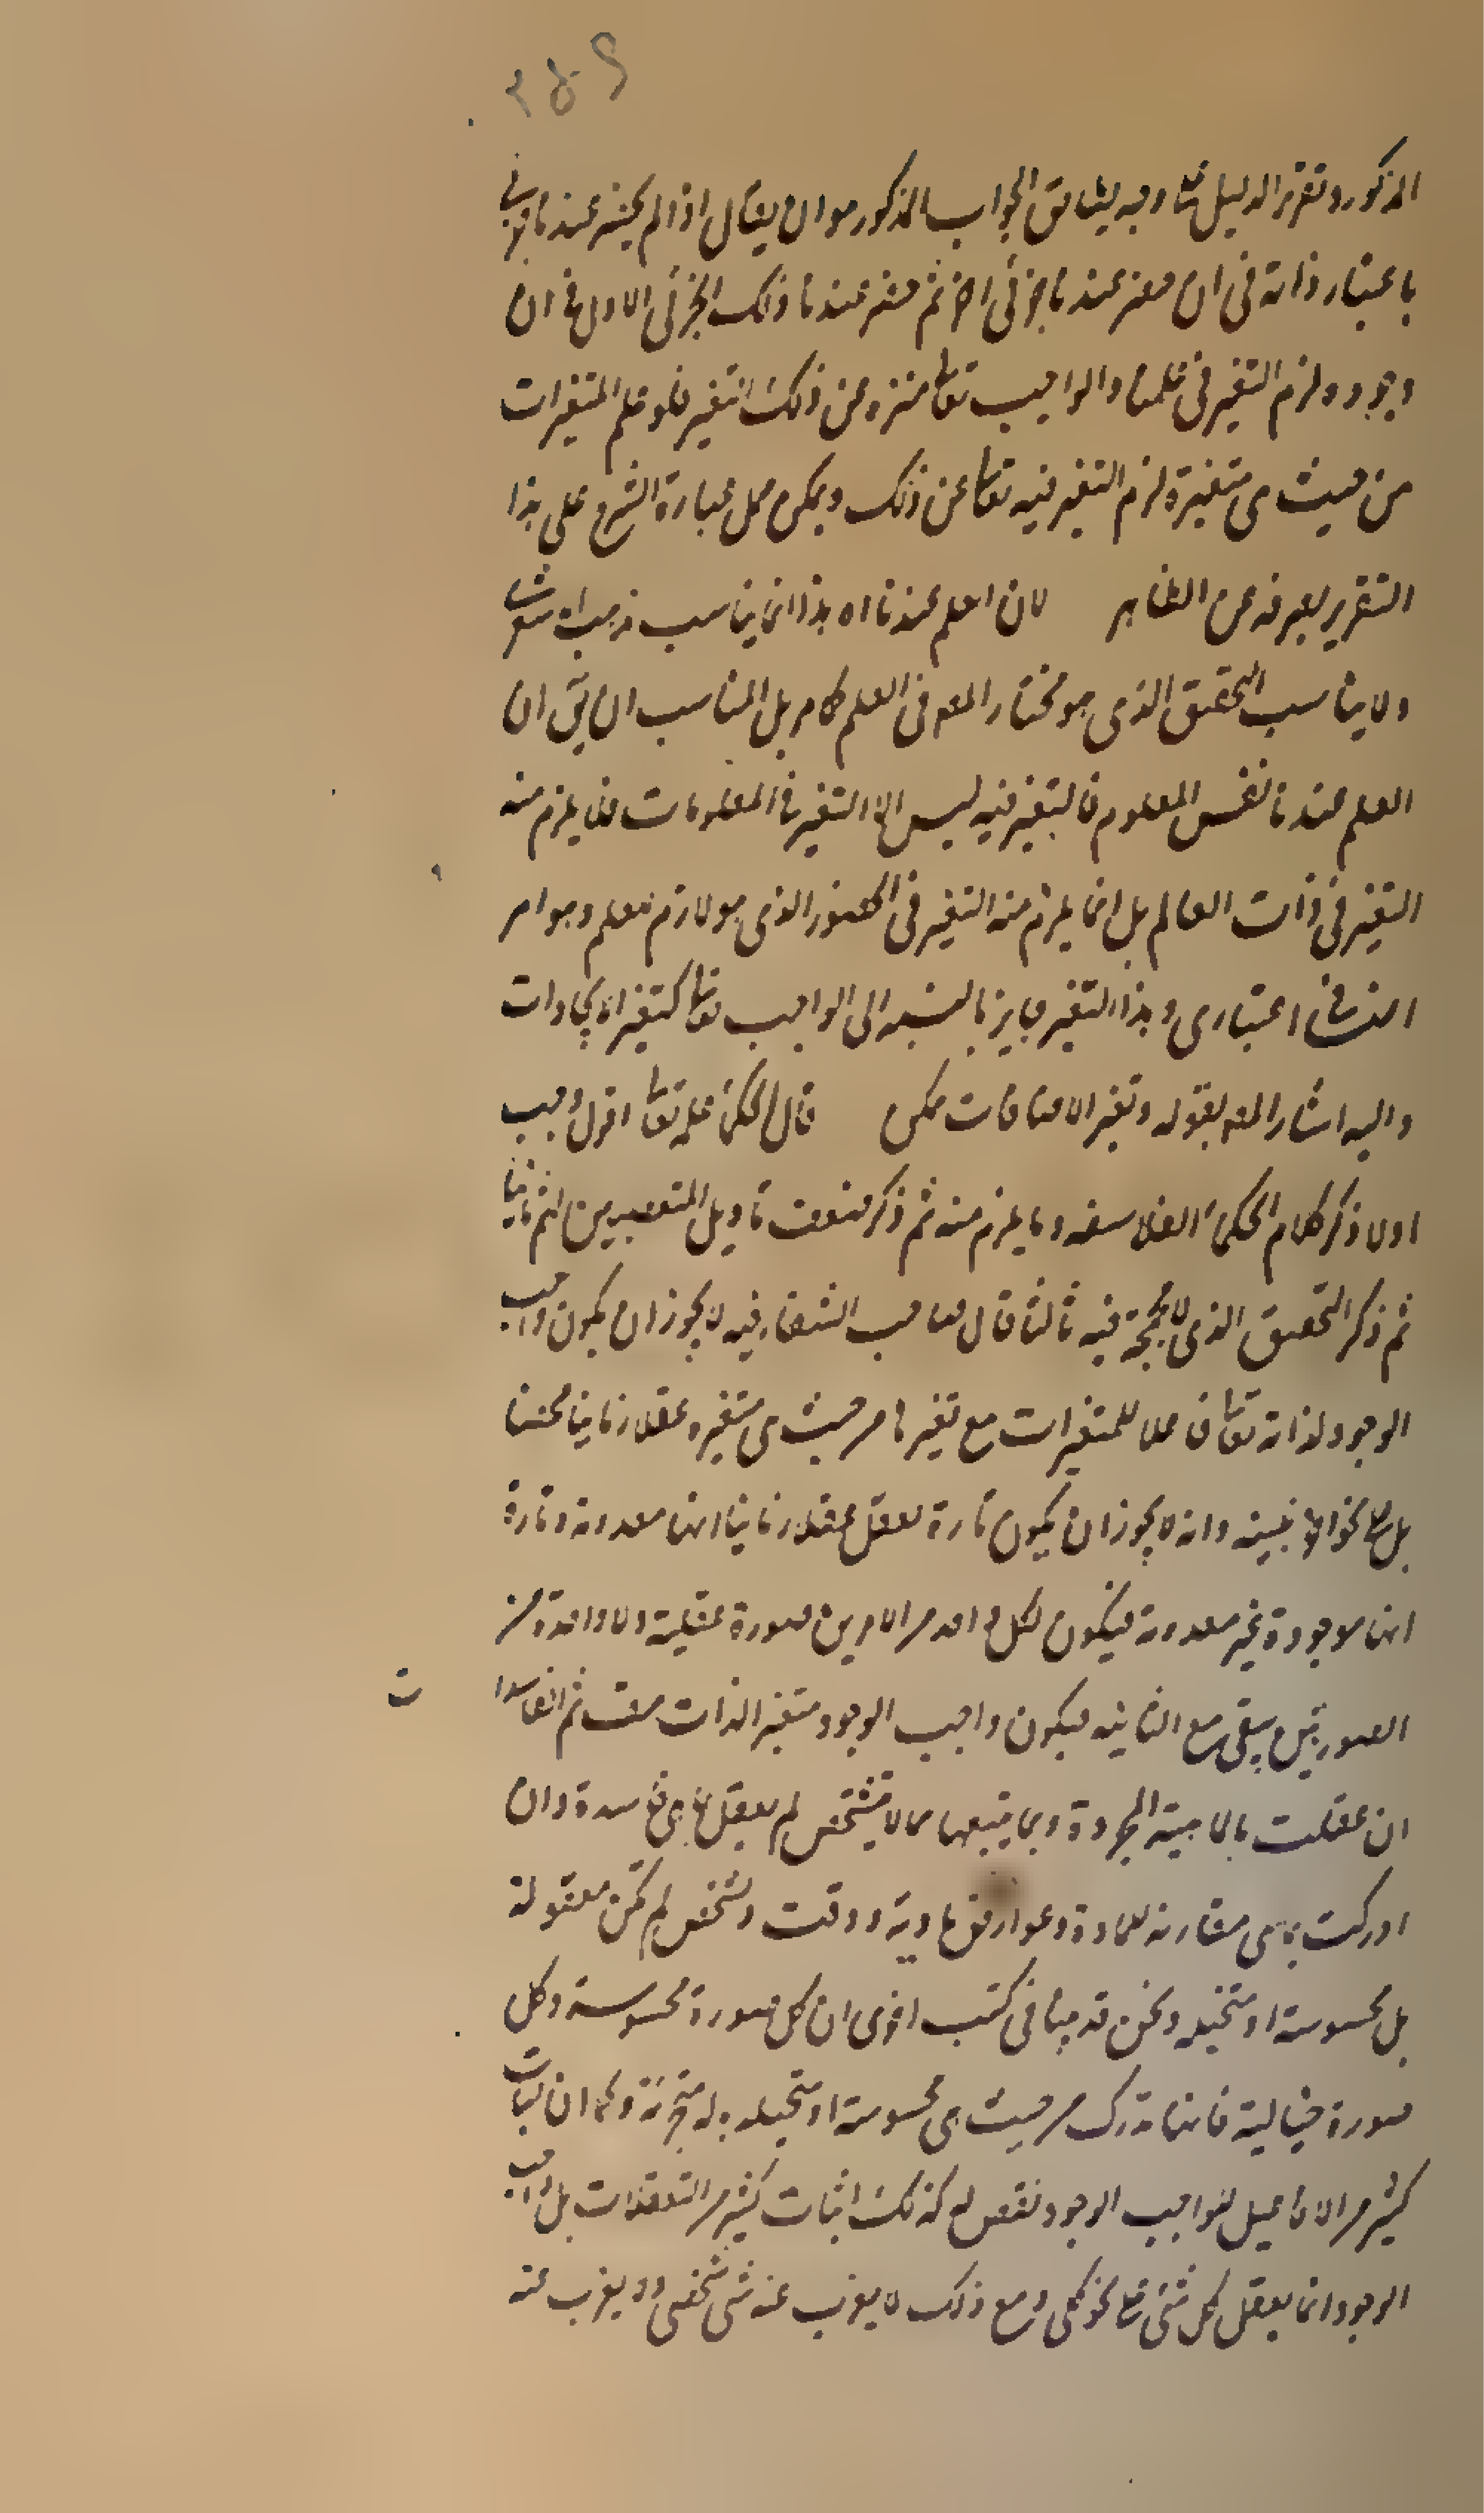 ٣٥٩
المذكور وتقرير الدليل على وجه يطابق الجواب المذكور هو ان يقال اذا لم يحضر عندنا جزئي
باعتبار ذاته في ان حضر عندنا جزئي اخر ثم حضر عندنا ذلك الجزئي الاول في ان
وجوده لزم التغير في علمنا والواجب تعالى منزه عن ذلك التغير فلو علم المتغيرات
من حيث هي متغيرة لزم التغير فيه تعالى عن ذلك ويمكن حمل عبارة الشرح على هذا
التقرير بصرفه عن الظاهر لان العلم عندنا اه هذا انما يناسب مذهب
ولا يناسب التحقيق الذي هو مختار المص في العلم كما مر بل المناسب ان يق ان
العلم عندنا نفس المعلوم فالتغير فيه ليس الا التغير في المعلومات فلا يلزم منه
التغير في ذات العالم بل انما يلزم منه التغير في الحضور الذي هو لازم للعلم وهو امر
اضافي اعتباري وهذا التغير جايز بالنسبه الى الواجب تعالى كتغير الايجادات
واليه اشار المص بقوله وتغير الاضافات ممكن قال الحكماء علمه تعالى اقول وجب
اولا ذكر كلام الحكماء الفلاسفه وما يلزم منه ثم ذكر ضعف تاويل المتعصبين لهم ثانيا
ثم ذكر التحقيق الذي لا مجمجة فيه ثالثا قال صاحب الشفاء فيه لا يجوز ان يكون واجب
الوجود لذاته تعالى عاقلا للمتغيرات مع تغيرها من حيث هي متغيره عقلا زمانيا محضا
بل على نحو اخر نبينه وانه لا يجوز ان يكون تارة يعقل عقلا زمانيا انها معدومة وتارة
انها موجودة غير معدومة فيكون لكل واحد من الامرين صورة عقلية ولا واحدة من
الصورتين يبقى مع الثانيه فيكون واجب الوجود متغير الذات هف ثم الفاسدات
ان عقلت بالماهية المجردة وبما يتبعها مما لا يتشخص لم يعقل بما هي فاسدة وان
ادركت بما هي مقارنه للمادة وعوارض مادية ووقت وتشخص لم تكن معقولة
بل محسوسة او متخيله ونحن قد بينا في كتب اخرى ان كل صورة محسوسة وكل
صورة خيالية فانما تدرك من حيث هي محسوسة او متخيله بآلة متجزئة وكما ان اثبات
كثير من الافاعيل للواجب الوجود نقص له كذلك اثبات كثير من التعقلات بل واجب
الوجود انما يعقل كل شئ على نحو كلي ومع ذلك لا يعزب عنه شئ شخصي ولا يعزب عنه